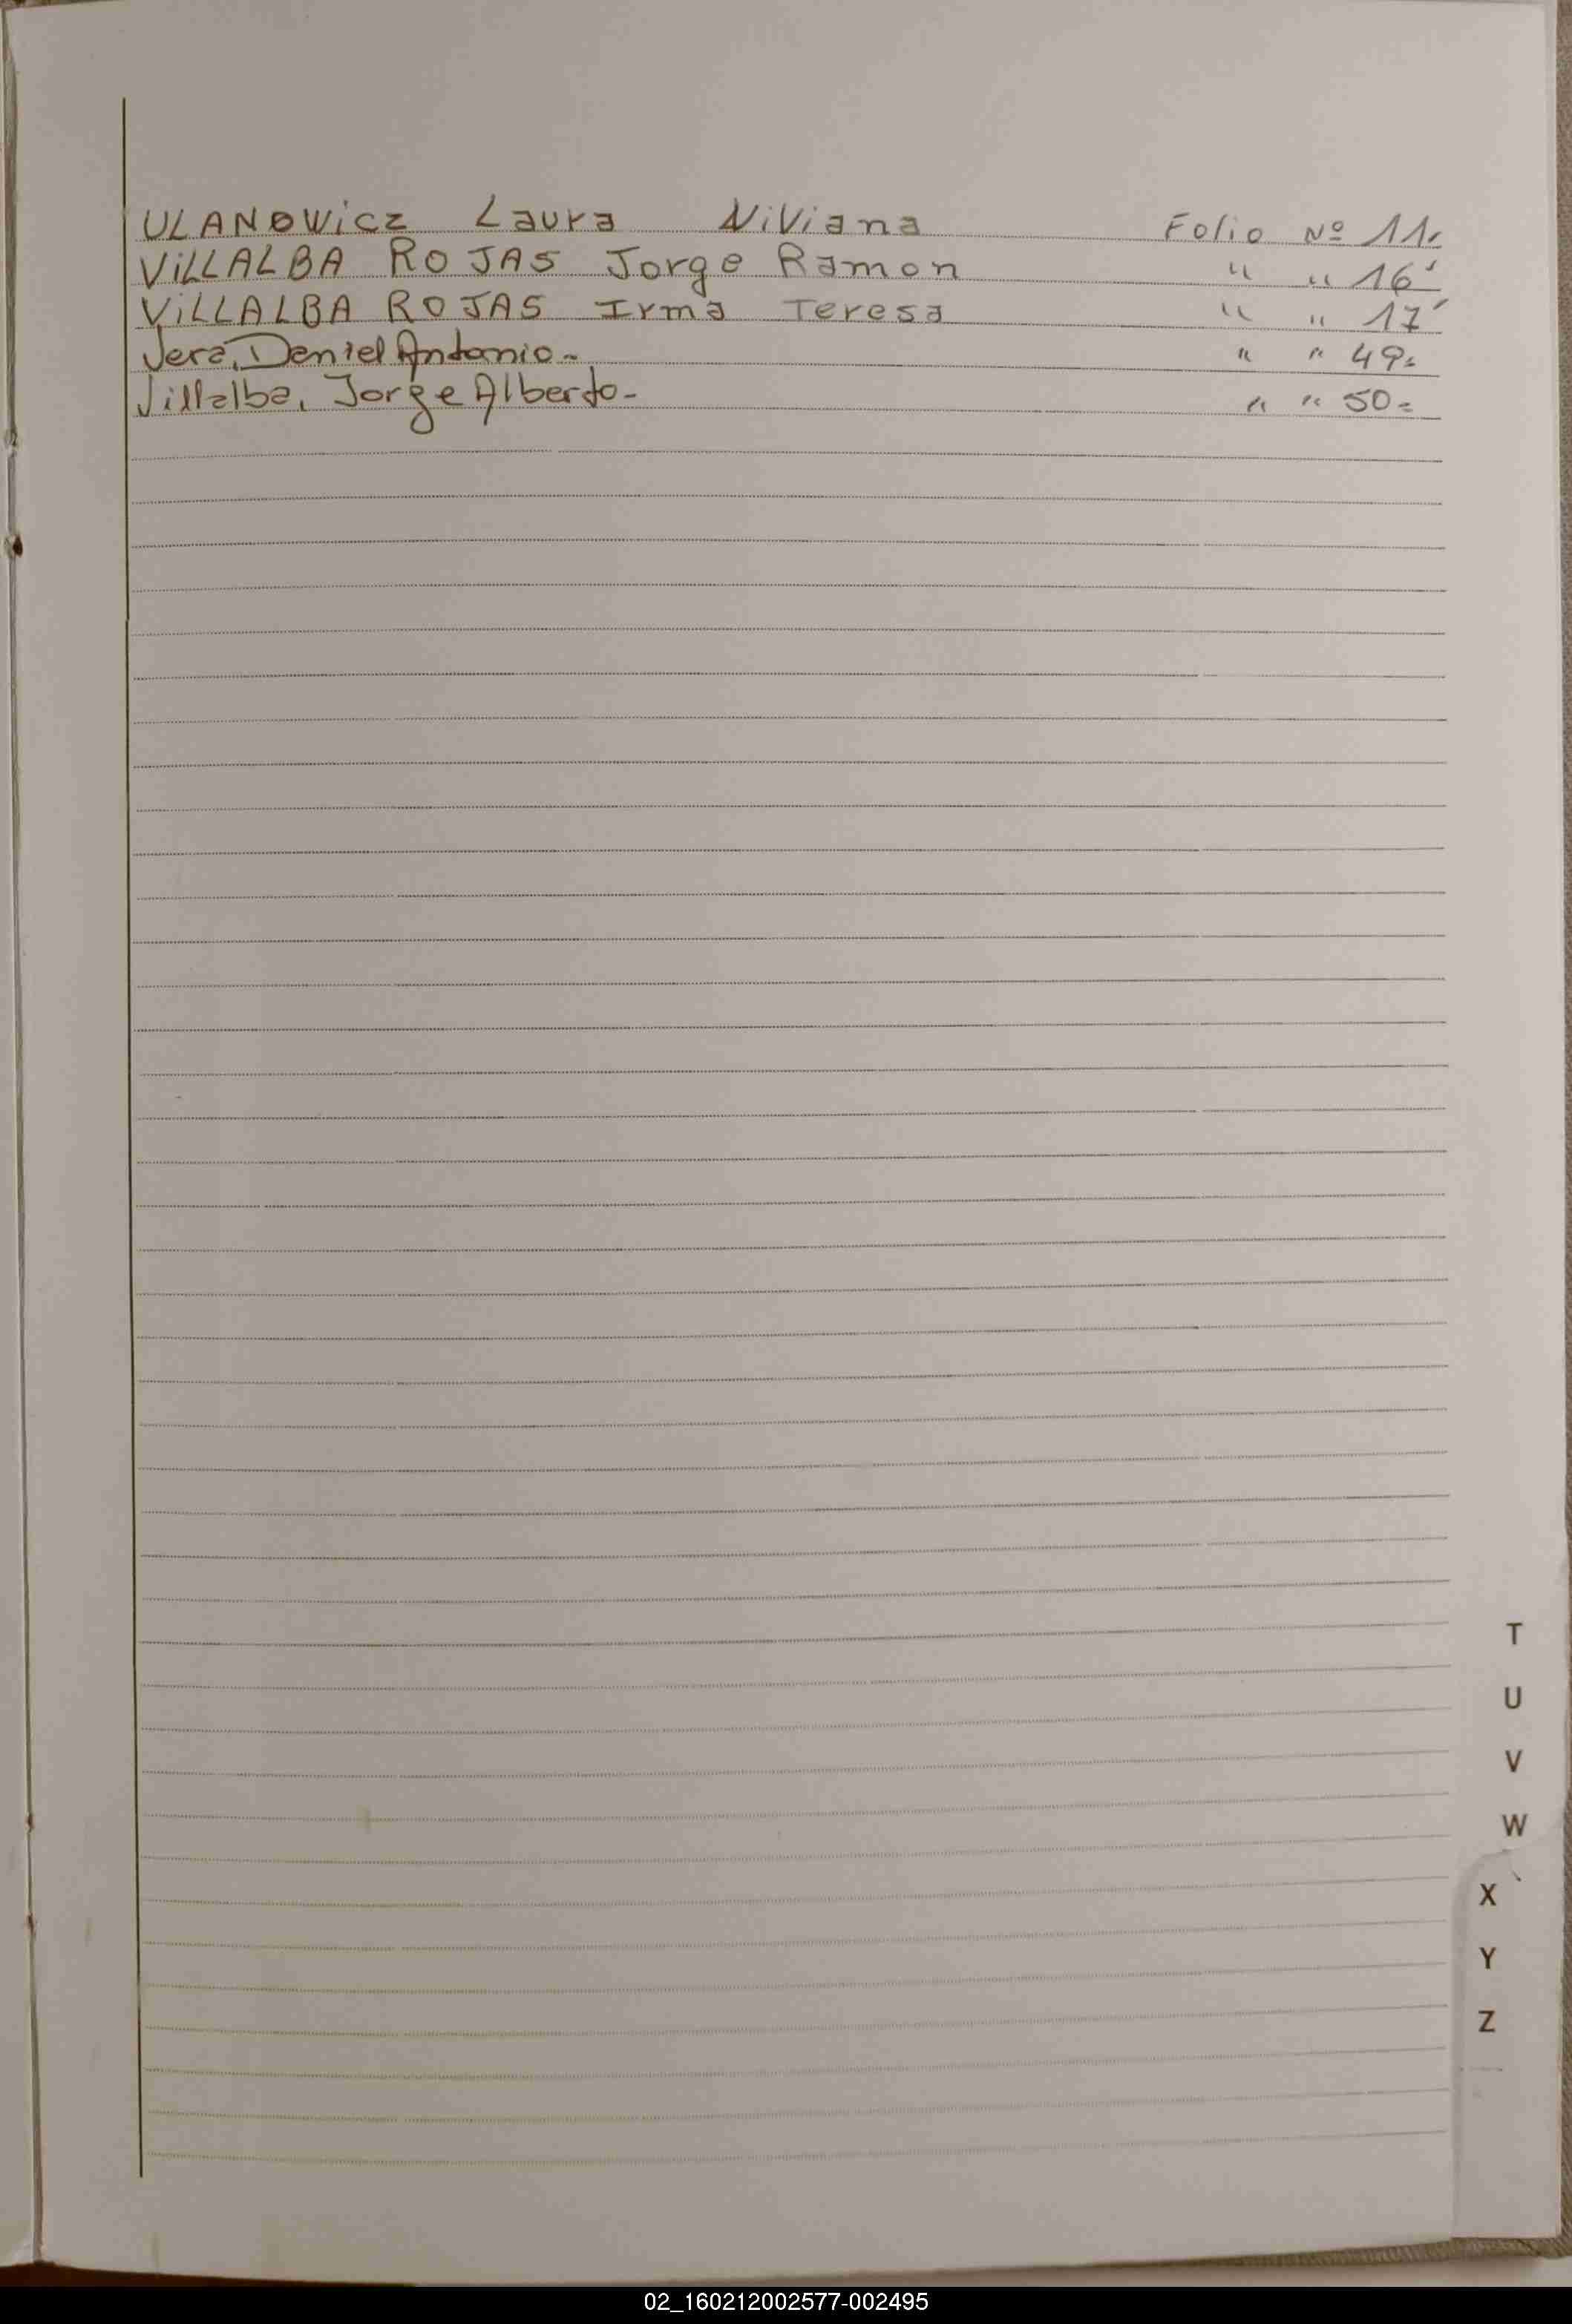 ULANOWicz Laura ViViana Folio Nº 11.
ViLLALBA ROJAS Jorge Ramon " " 16'
ViLLALBA ROJAS Irma Teresa " " 17'
Vera, Daniel Antonio.- " " 49.=
Villalba, Jorge Alberto.- " " 50.=
T
U
V
W
X
Y
Z
02_160212002577-002495